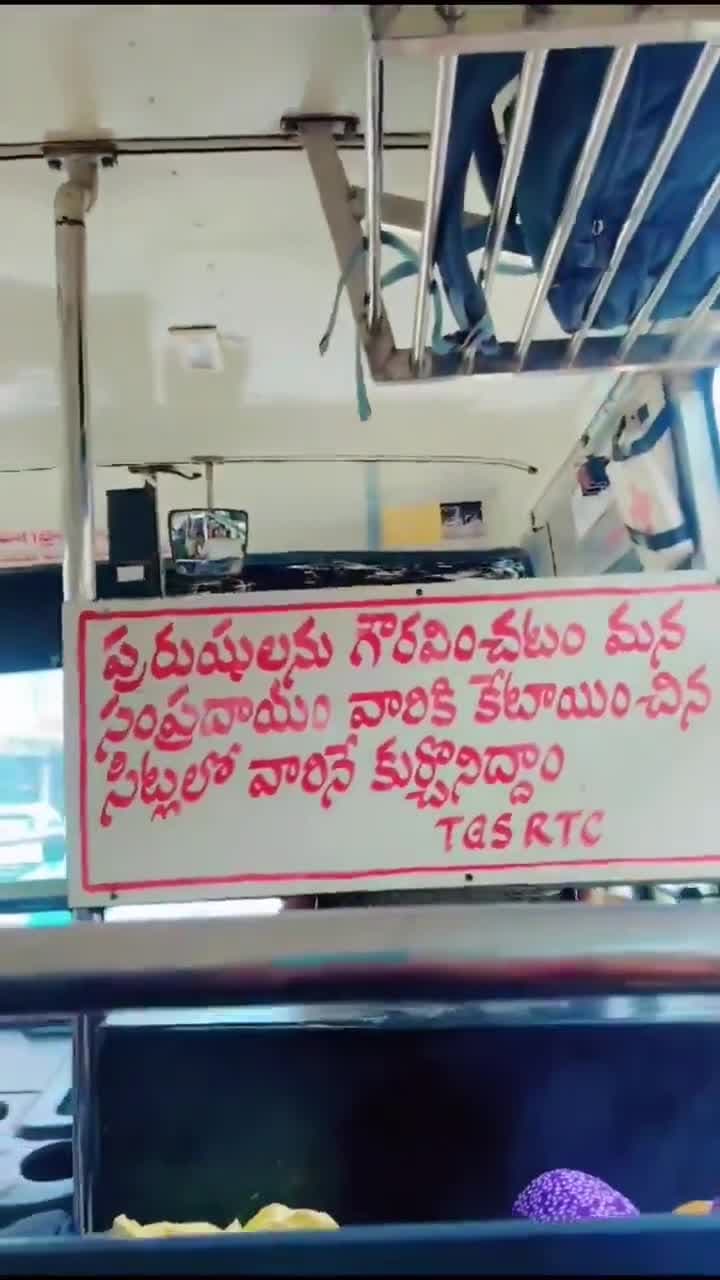 పురుషులను గౌరవించటం మన
సంప్రదాయం వారికి కేటాయించిన
సీట్లలో వారినే కుర్చొనిద్దాం
TGSRTC